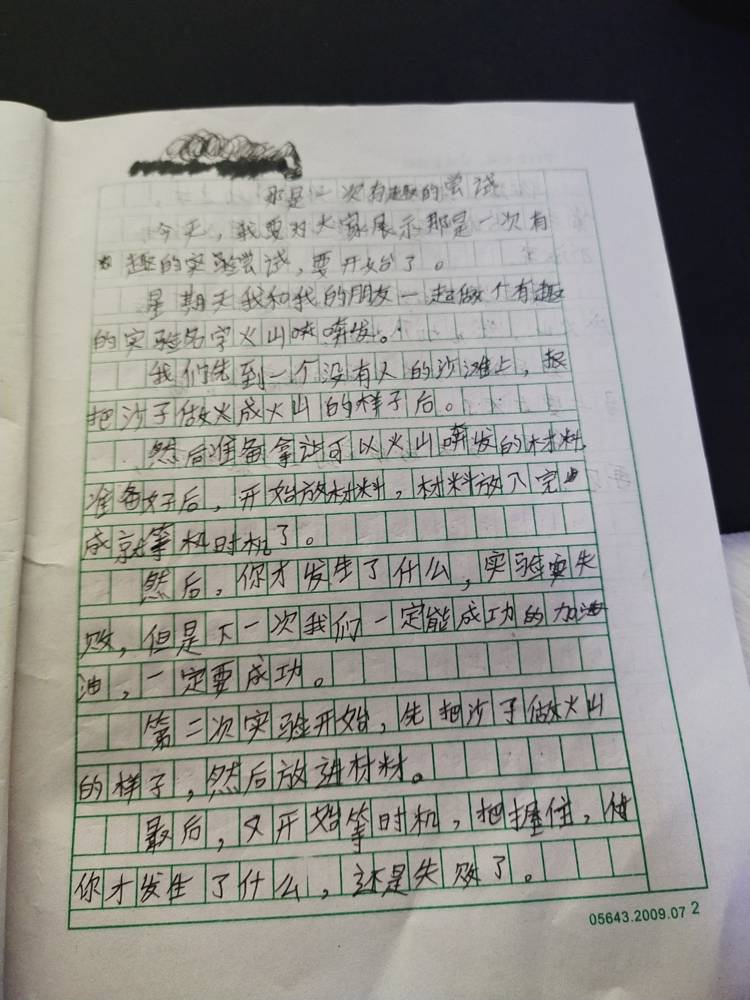 那是一次有趣的尝试
今天，我要对大家展示那是一次有
趣的实验尝试，要开始了。
星期天我和我的朋友一起做个有趣
的实验名字火山喷发。
我们先到一个没有人的沙滩上，
把沙子做成火山的样子后。
然后准备拿让可以火山喷发的材料，
准备好后，开始放材料，材料放入完
成就等时机了。
然后，你才发生了什么，实验失
败，但是下一次我们一定能成功的加
油，一定要成功。
第二次实验开始，先把沙子做火山
的样子，然后放进材料。
最后，又开始等时机，把握住，
你才发生了什么，还是失败了。
05643.2009.07 2